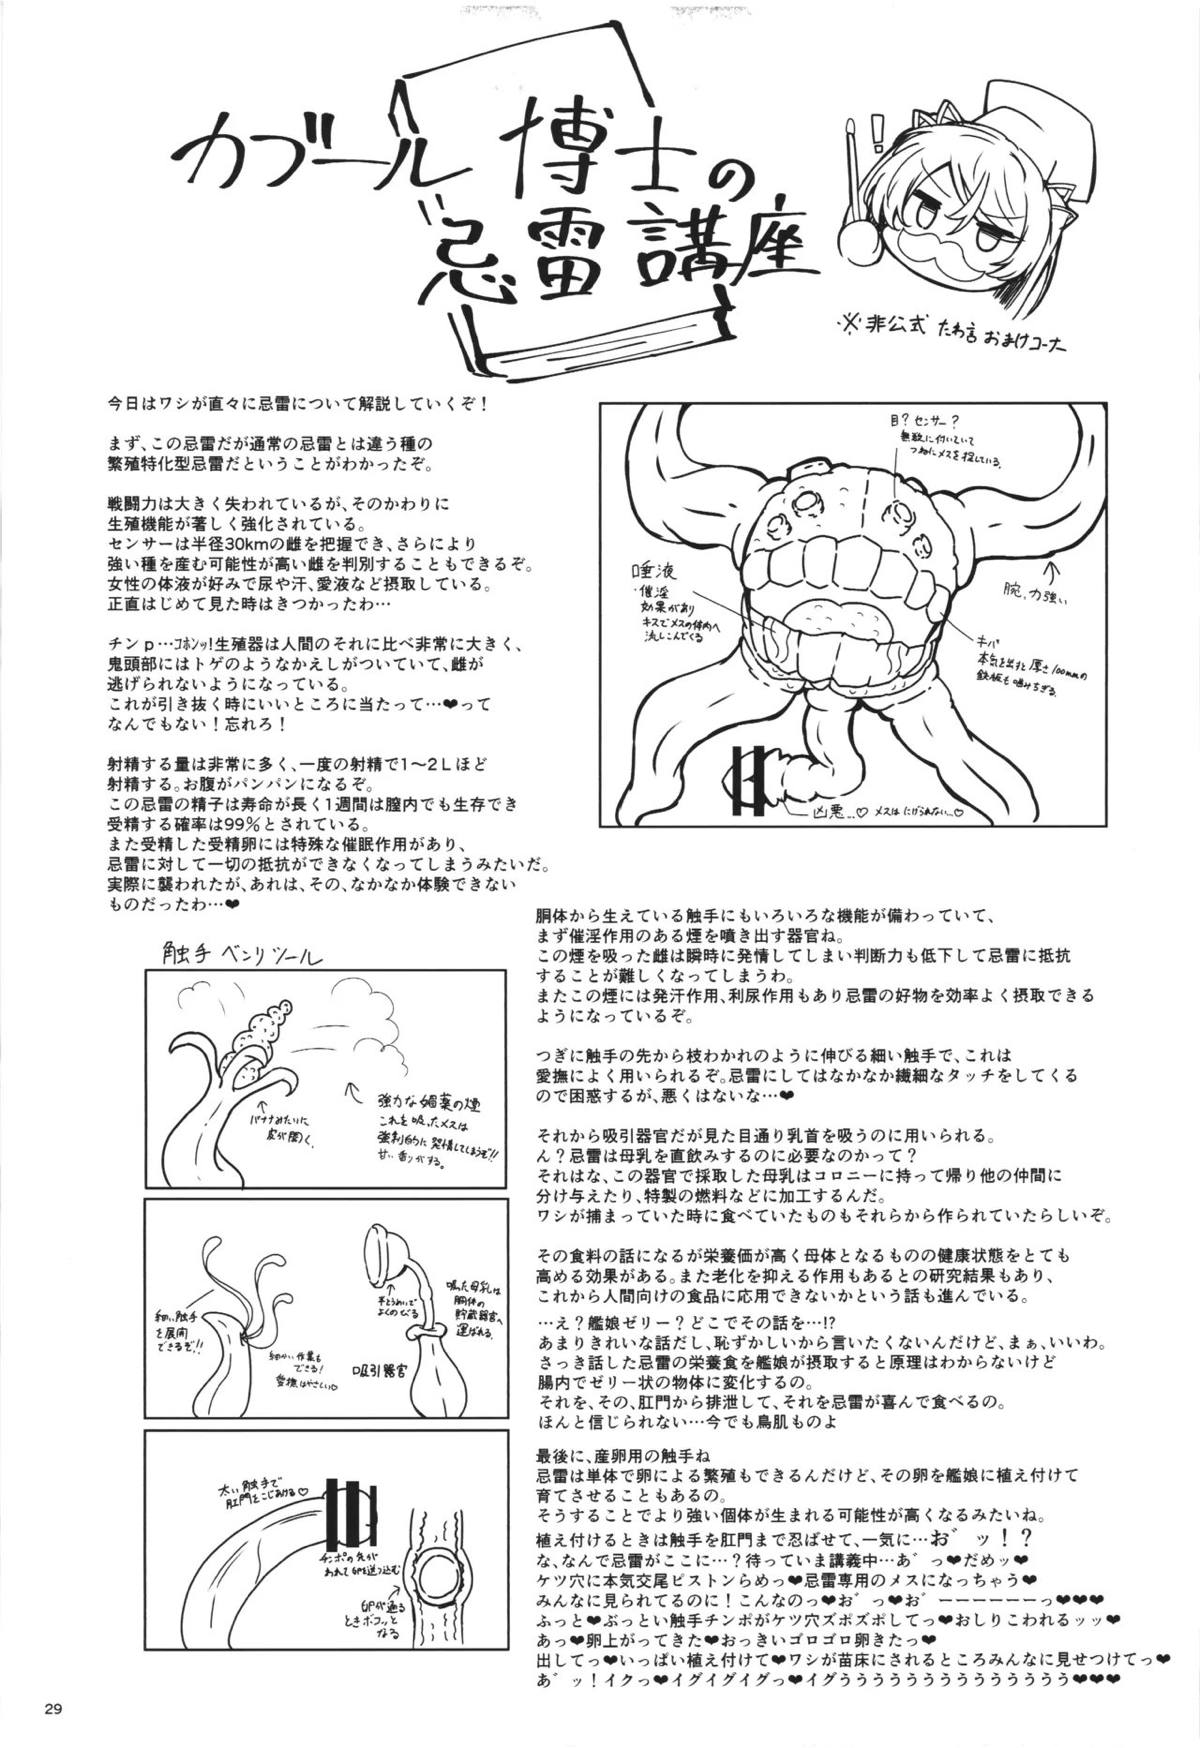 カブール 博士の
忌雷 講座
※非公式 たわ言 おまけコーナー
今日はワシが直々に忌雷について解説していくぞ！
まず、この忌雷だが通常の忌雷とは違う種の
繁殖特化型忌雷だということがわかったぞ。
戦闘力は大きく失われているが、そのかわりに
生殖機能が著しく強化されている。
センサーは半径30kmの雌を把握でき、さらにより
強い種を産む可能性が高い雌を判別することもできるぞ。
女性の体液が好みで尿や汗、愛液など摂取している。
正直はじめて見た時はきつかったわ…
チンｐ…ｺﾎﾝｯ！生殖器は人間のそれに比べ非常に大きく、
鬼頭部にはトゲのようなかえしがついていて、雌が
逃げられないようになっている。
これが引き抜く時にいいところに当たって…❤って
なんでもない！忘れろ！
射精する量は非常に多く、一度の射精で1～2Ｌほど
射精する。お腹がパンパンになるぞ。
この忌雷の精子は寿命が長く1週間は膣内でも生存でき
受精する確率は99％とされている。
また受精した受精卵には特殊な催眠作用があり、
忌雷に対して一切の抵抗ができなくなってしまうみたいだ。
実際に襲われたが、あれは、その、なかなか体験できない
ものだったわ…❤
目？センサー？
無数に付いていて
つねにメスを探している。
唾液
・催淫
効果があり
キスでメスの体内へ
流しこんでくる
腕、力強い
キバ
本気を出すと厚さ100mmの
鉄板も噛みちぎる
凶悪…♡ メスはにげられない…♡
触手 ベンリツール
バナナみたいに
皮が開く。
強力な媚薬の煙
これを吸ったメスは
強制的に発情してしまうぞ!!
甘い香りがする。
細い触手
を展開
できるぞ!!
細かい作業も
できる！
愛撫はやさしい♡
よくのびる
吸った母乳は
胴体の
貯蔵器官へ
運ばれる。
吸引器官
太い触手で
肛門をこじあける♡
チンポの先が
われて卵を送り込む
卵が通る
ときボコッと
なる
胴体から生えている触手にもいろいろな機能が備わっていて、
まず催淫作用のある煙を噴き出す器官ね。
この煙を吸った雌は瞬時に発情してしまい判断力も低下して忌雷に抵抗
することが難しくなってしまうわ。
またこの煙には発汗作用、利尿作用もあり忌雷の好物を効率よく摂取できる
ようになっているぞ。
つぎに触手の先から枝わかれのように伸びる細い触手で、これは
愛撫によく用いられるぞ。忌雷にしてはなかなか繊細なタッチをしてくる
ので困惑するが、悪くはないな…❤
それから吸引器官だが見た目通り乳首を吸うのに用いられる。
ん？忌雷は母乳を直飲みするのに必要なのかって？
それはな、この器官で採取した母乳はコロニーに持って帰り他の仲間に
分け与えたり、特製の燃料などに加工するんだ。
ワシが捕まっていた時に食べていたものもそれらから作られていたらしいぞ。
その食料の話になるが栄養価が高く母体となるものの健康状態をとても
高める効果がある。また老化を抑える作用もあるとの研究結果もあり、
これから人間向けの食品に応用できないかという話も進んでいる。
…え？艦娘ゼリー？どこでその話を…!?
あまりきれいな話だし、恥ずかしいから言いたくないんだけど、まぁ、いいわ。
さっき話した忌雷の栄養食を艦娘が摂取すると原理はわからないけど
腸内でゼリー状の物体に変化するの。
それを、その、肛門から排泄して、それを忌雷が喜んで食べるの。
ほんと信じられない…今でも鳥肌ものよ
最後に、産卵用の触手ね
忌雷は単体で卵による繁殖もできるんだけど、その卵を艦娘に植え付けて
育てさせることもあるの。
そうすることでより強い個体が生まれる可能性が高くなるみたいね。
植え付けるときは触手を肛門まで忍ばせて、一気に…お゛ッ！？
な、なんで忌雷がここに…？待っていま講義中…あ゛っ❤だめッ❤
ケツ穴に本気交尾ピストンらめっ❤忌雷専用のメスになっちゃう❤
みんなに見られてるのに！こんなのっ❤お゛っ❤お゛ーーーーーーっ❤❤❤
ふっと❤ぶっとい触手チンポがケツ穴ズポズポしてっ❤おしりこわれるッッ❤
あっ❤卵上がってきた❤おっきいゴロゴロ卵きたっ❤
出してっ❤いっぱい植え付けて❤ワシが苗床にされるところみんなに見せつけてっ❤
あ゛ッ！イクっ❤イグイグイグっ❤イグうううううううううううううううう❤❤❤
29